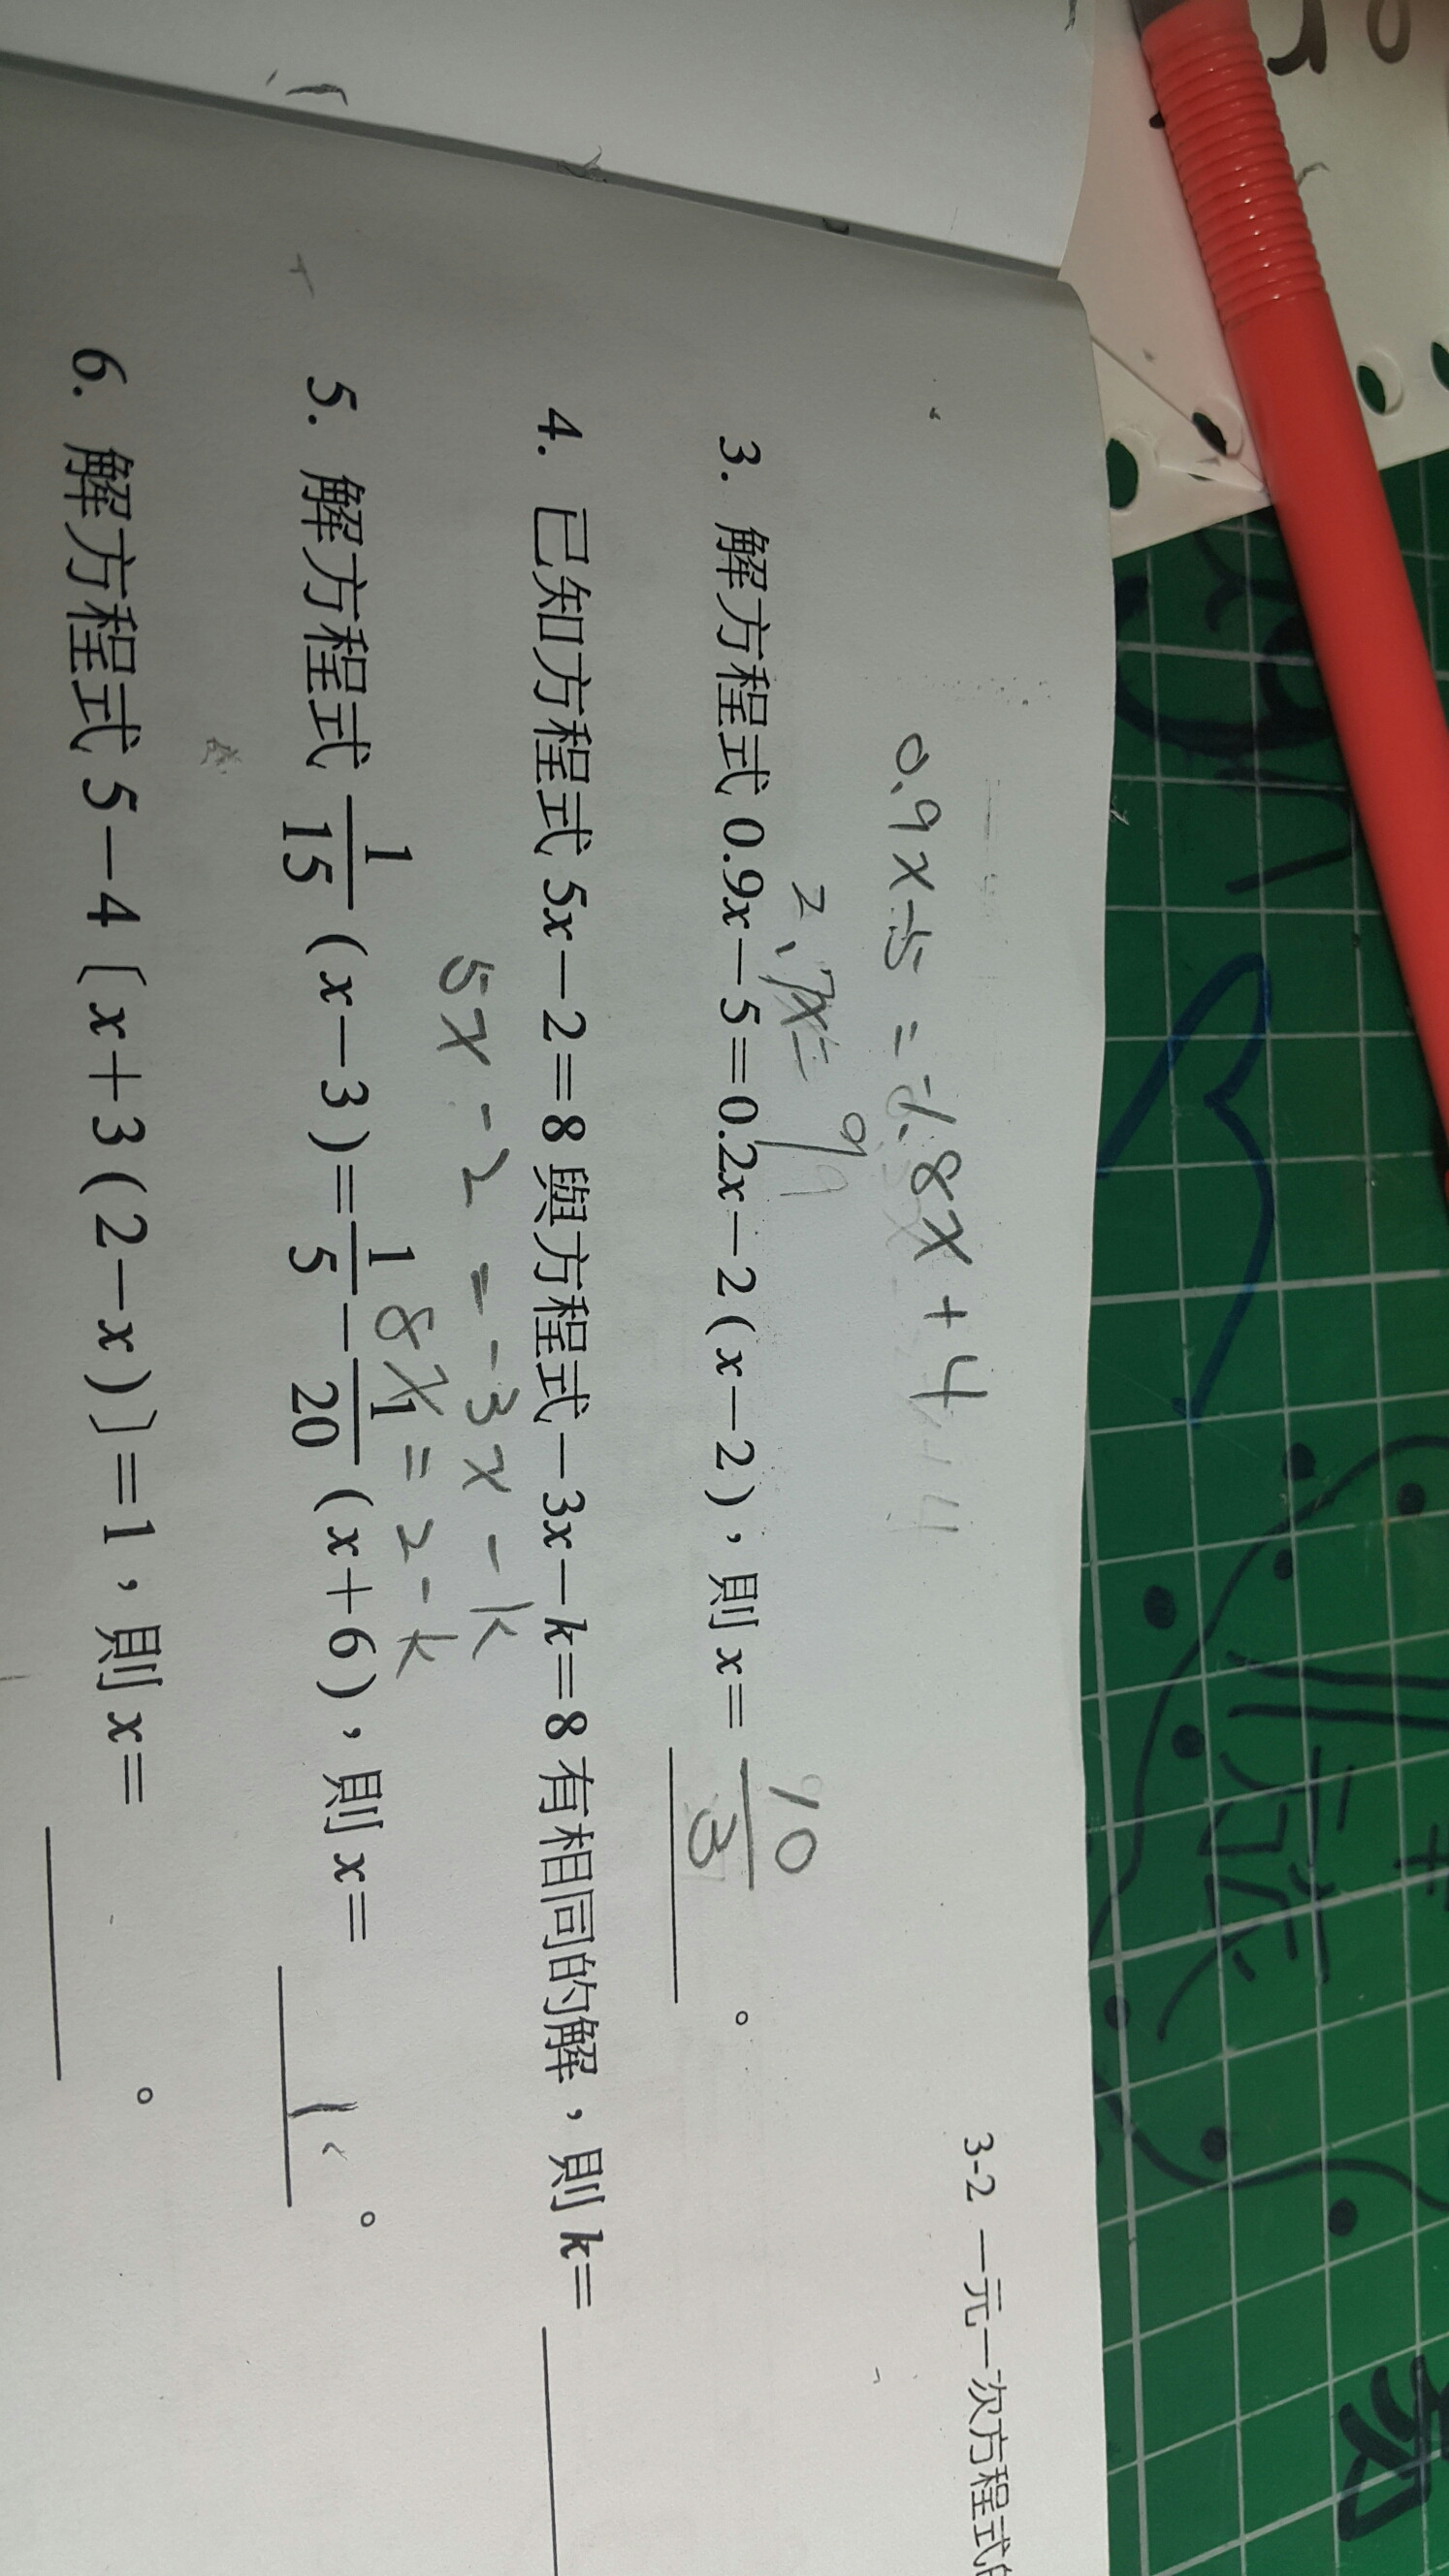 3-2 一元一次方程式的
0.9x-5=-1.8x+4
3. 解方程式 0.9x-5=0.2x-2(x-2),則 x= 10/3 。
2.7x= 9
4. 已知方程式 5x-2=8 與方程式-3x-k=8 有相同的解,則 k=
5x-2=-3x-k
8x=2-k
5. 解方程式 1/15 (x-3)= 1/5 - 1/20 (x+6),則 x= 。
6. 解方程式 5-4〔x+3(2-x)〕=1,則 x= 。